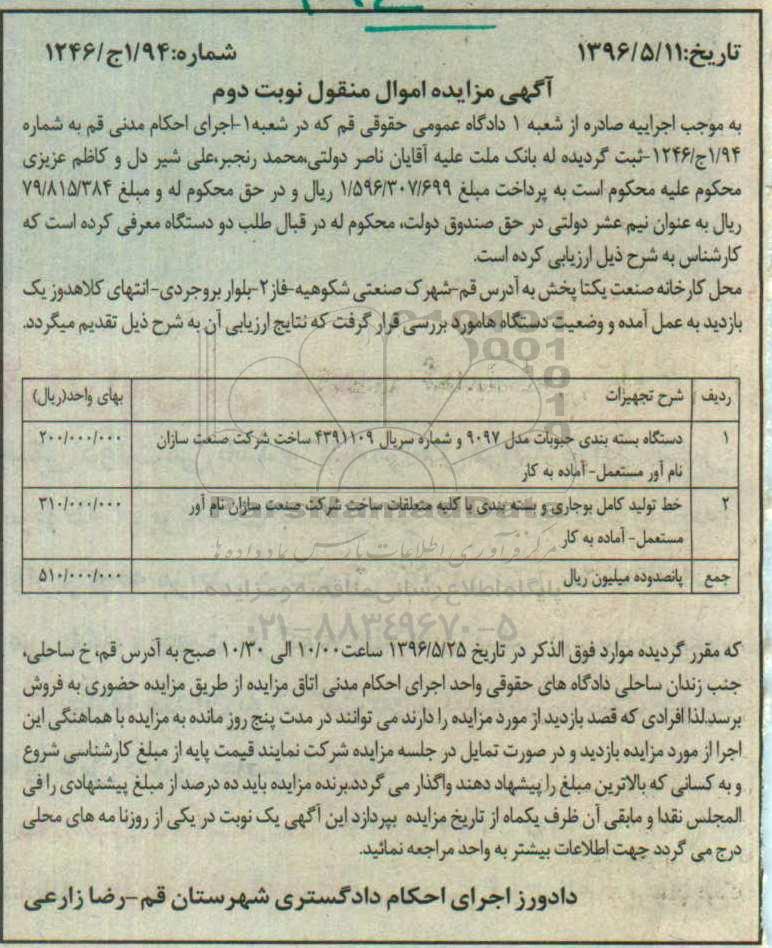 تاریخ:۱۳۹۶/۵/۱۱
شماره:۱/۹۴ج/۱۲۴۶
آگهی مزایده اموال منقول نوبت دوم
به موجب اجراییه صادره از شعبه ۱ دادگاه عمومی حقوقی قم که در شعبه۱-اجرای احکام مدنی قم به شماره
۱/۹۴ج/۱۲۴۶-ثبت گردیده له بانک ملت علیه آقایان ناصر دولتی،محمد رنجبر،علی شیر دل و کاظم عزیزی
محکوم علیه محکوم است به پرداخت مبلغ ۱/۵۹۶/۳۰۷/۶۹۹ ریال و در حق محکوم له و مبلغ ۷۹/۸۱۵/۳۸۴
ریال به عنوان نیم عشر دولتی در حق صندوق دولت، محکوم له در قبال طلب دو دستگاه معرفی کرده است که
کارشناس به شرح ذیل ارزیابی کرده است.
محل کارخانه صنعت یکتا پخش به آدرس قم-شهرک صنعتی شکوهیه-فاز۲-بلوار بروجردی-انتهای کلاهدوز یک
بازدید به عمل آمده و وضعیت دستگاه هامورد بررسی قرار گرفت که نتایج ارزیابی آن به شرح ذیل تقدیم میگردد.
ردیف شرح تجهیزات بهای واحد(ریال)
۱ دستگاه بسته بندی حبوبات مدل ۹۰۹۷ و شماره سریال ۴۳۹۱۱۰۹ ساخت شرکت صنعت سازان ۲۰۰/۰۰۰/۰۰۰
نام آور مستعمل- آماده به کار
۲ خط تولید کامل بوجاری و بسته بندی با کلیه متعلقات ساخت شرکت صنعت سازان نام آور ۳۱۰/۰۰۰/۰۰۰
مستعمل- آماده به کار
جمع پانصدوده میلیون ریال ۵۱۰/۰۰۰/۰۰۰
ParsNamadData
مرکز فرآوری اطلاعات پارس نماد داده ها
پایگاه اطلاع رسانی مناقصه و مزایده
۰۲۱-۸۸۳۴۹۶۷۰-۵
که مقرر گردیده موارد فوق الذکر در تاریخ ۱۳۹۶/۵/۲۵ ساعت۱۰/۰۰ الی ۱۰/۳۰ صبح به آدرس قم، خ ساحلی،
جنب زندان ساحلی دادگاه های حقوقی واحد اجرای احکام مدنی اتاق مزایده از طریق مزایده حضوری به فروش
برسد.لذا افرادی که قصد بازدید از مورد مزایده را دارند می توانند در مدت پنج روز مانده به مزایده با هماهنگی این
اجرا از مورد مزایده بازدید و در صورت تمایل در جلسه مزایده شرکت نمایند قیمت پایه از مبلغ کارشناسی شروع
و به کسانی که بالاترین مبلغ را پیشهاد دهند واگذار می گردد.برنده مزایده باید ده درصد از مبلغ پیشنهادی را فی
المجلس نقدا و مابقی آن ظرف یکماه از تاریخ مزایده بپردازد این آگهی یک نوبت در یکی از روزنا مه های محلی
درج می گردد جهت اطلاعات بیشتر به واحد مراجعه نمائید.
دادورز اجرای احکام دادگستری شهرستان قم-رضا زارعی